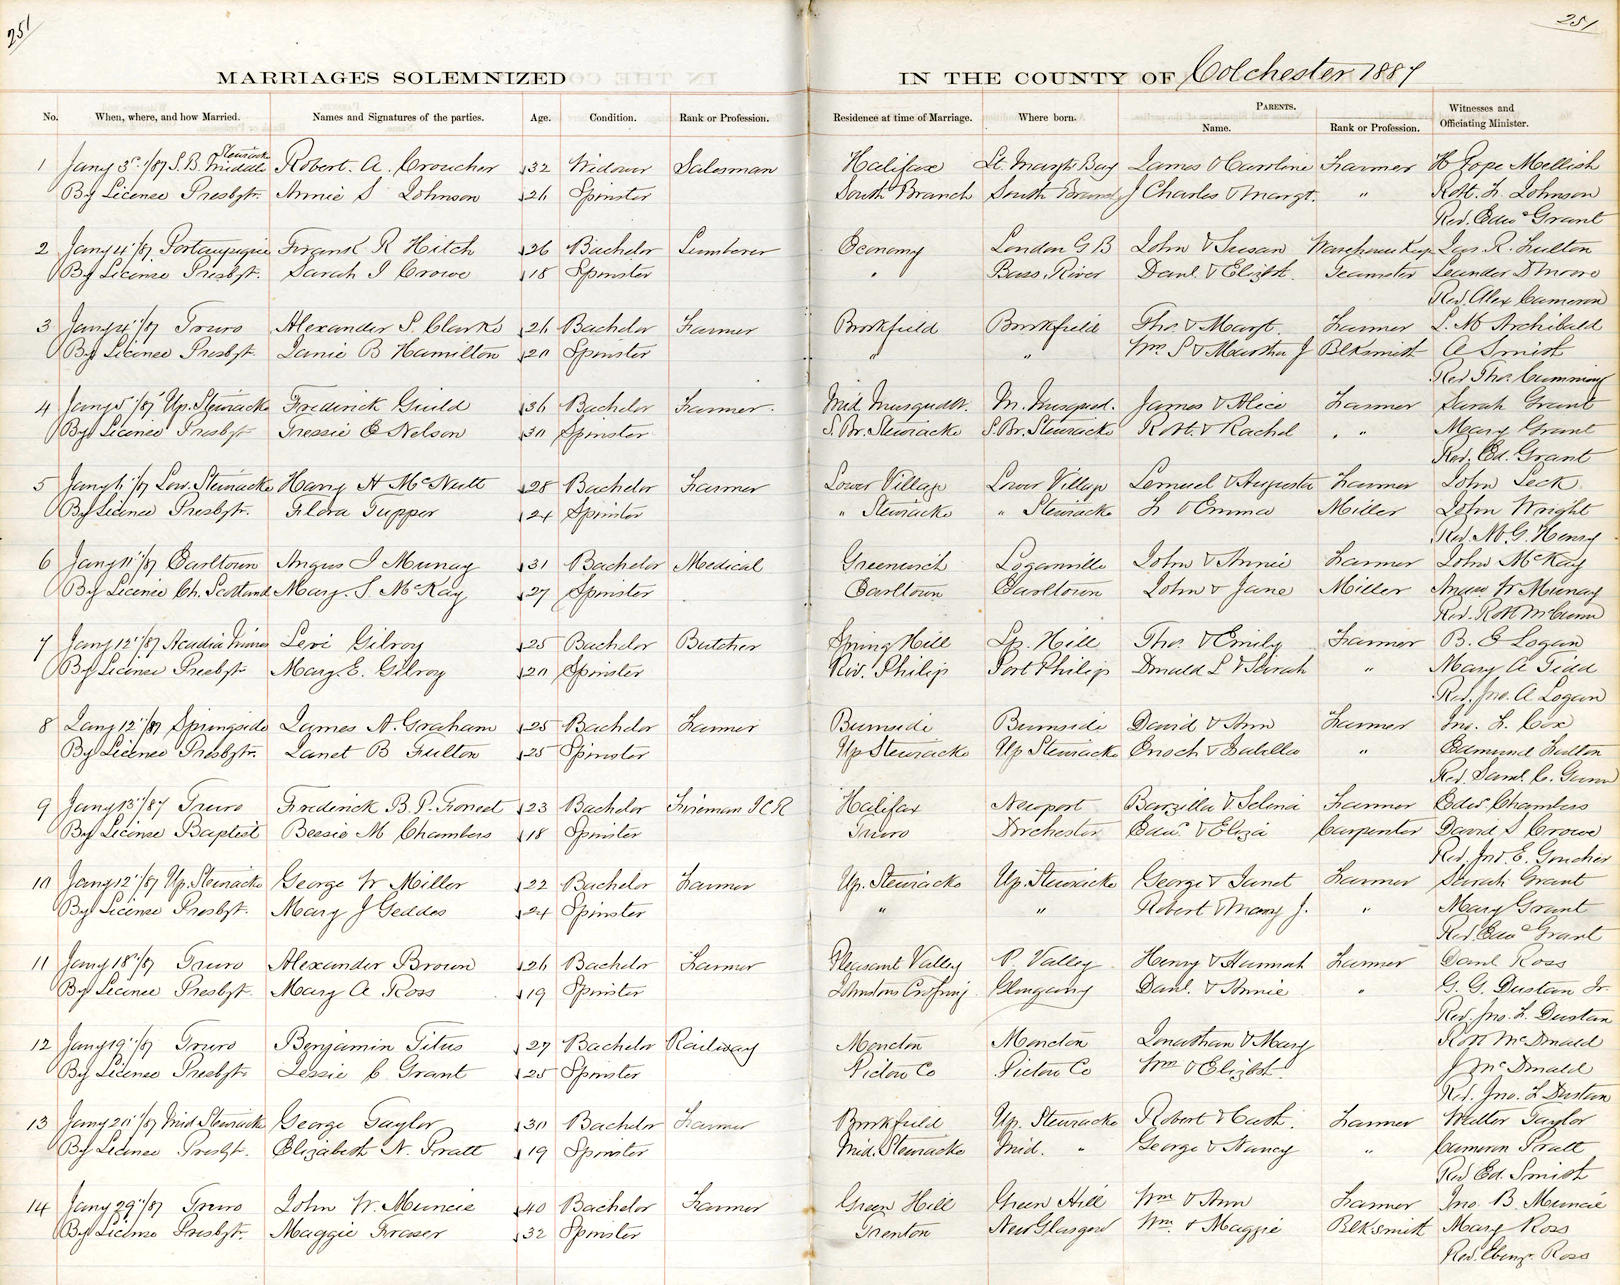 251
251
MARRIAGES SOLEMNIZED
IN THE COUNTY OF Colchester 1887
No. When, where, and how Married. Names and Signatures of the parties. Age. Condition. Rank or Profession. Residence at time of Marriage. Where born. PARENTS. Name. Rank or Profession. Witnesses and Officiating Minister.
1 Jany 3 /87 S. B. Middle Stewiacke Robert. A. Croucher 32 Widower Salesman Halifax St. Margts Bay James & Caroline Farmer H Pope Mellish
By Licence Presbytr. Annie S Johnson 26 Spinster South Branch South Branch J Charles & Margt. " Robt. F. Johnson
Rev. Edwd Grant
2 Jany 4 /87 Portaupique Frank R Hitch 26 Bachelor Lumberer Economy London G B John & Susan Warehouse Keep Jas. R. Fulton
By License Presbyt. Sarah J Crowe 18 Spinster " Bass River Danl. & Elizbt. Teamster Leander D Moore
Rev. Alex Cameron
3 Jany 4 /87 Truro Alexander S. Clarke 26 Bachelor Farmer Brookfield Brookfield Thos. & Margt. Farmer L. M Archibald
By Licence Presbyt. Janie B Hamilton 20 Spinster " " Wm S & Martha J Blksmith A Smith
Rev Thos. Cumming
4 Jany 5 /87 Up. Stewiacke Fredirick Guild 36 Bachelor Farmer. Mid. Musquodt. M. Musquod. James & Alice Farmer Sarah Grant
By Licence Presbyt Tressie E Nelson 30 Spinster S. Br. Stewiacke S. Br. Stewiacke Robt. & Rachel " " Mary Grant
Rev. Ed. Grant
5 Jany 6 /87 Low. Stewiacke Harry H McNutt 28 Bachelor Farmer Lower Village Lower Village Lemuel & Augusta Farmer John Leck
By Licence Presbytr. Flora Tupper 24 Spinster " Stewiacke " Stewiacke F & Emma Miller John Wright
Rev. M. G. Henry
6 Jany 11 /87 Earltown Angus J Murray 31 Bachelor Medical Greenwich Loganville John & Annie Farmer John McKay
By Licence Ch. Scotland Mary. S. McKay 27 Spinster Earltown Earltown John & Jane Miller Angus W Murray
Rev. Robt McCunn
7 Jany 12 /87 Acadia Mines Levi Gilroy 25 Bachelor Butcher Spring Hill Sp. Hill Thos. & Emily Farmer B. E Logan
By Licence Presbyt Mary. E. Gilroy 20 Spinster Riv. Philip Port Philip Donald L & Sarah " Mary A Tidd
Rev. Jno. A Logan
8 Jany 12 /87 Springside James N. Graham 25 Bachelor Farmer Burnside Burnside David & Ann Farmer Jno. F. Cox
By Licence Presbytr. Janet B Fulton 25 Spinster Up Stewiacke Up Stewiacke Enoch & Isabella " Edmund Fulton
Rev. Saml. C. Gunn
9 Jany 13 /87 Truro Frederick B. P. Forrest 23 Bachelor Fireman I C R Halifax Newport Barzilla & Selina Farmer Edw. Chambers
By License Baptist Bessie M Chambers 18 Spinster Truro Dorchester Edwd. & Eliza Carpenter David S Crowe
Rev. Jno. E. Goucher
10 Jany 12 /87 Up. Stewiacke George W Miller 22 Bachelor Farmer Up. Stewiacke Up. Stewiacke George & Janet Farmer Sarah Grant
By License Presbyt. Mary J Geddes 24 Spinster " " Robert & Mary J. " Mary Grant
Rev. Edwd Grant
11 Jany 18 /87 Truro Alexander Brown 26 Bachelor Farmer Pleasant Valley P. Valley Henry & Hannah Farmer Danl Ross
By Licence Presbyt. Mary A Ross 19 Spinster Johnstons Crossing Glengarry Danl. & Annie " G. G. Dustan Jr.
Rev. Jno. L. Dustan
12 Jany 19 /87 Truro Benjamin Titus 27 Bachelor Railway Moncton Moncton Jonathan & Mary Robt McDonald
By Licence Presbyt. Jessie C Grant 25 Spinster Pictou Co Pictou Co Wm & Elizbt. J McDonald
Rev. Jno. L Dustan
13 Jany 20 /87 Mid Stewiacke George Taylor 30 Bachelor Farmer Brookfield Up. Stewiacke Robert & Cath. Farmer Walter Taylor
By Licence Presbyt. Elizabeth N. Pratt 19 Spinster Mid. Stewiacke Mid. " George & Nancy " Cameron Pratt
Rev Ed. Smith
14 Jany 29 /87 Truro John W. Muncie 40 Bachelor Farmer Green Hill Green Hill Wm & Ann Farmer Jno. B. Muncie
By License Presbyt. Maggie Fraser 32 Spinster Trenton New Glasgow Wm & Maggie Blksmith Mary Ross
Rev. Ebenz. Ross